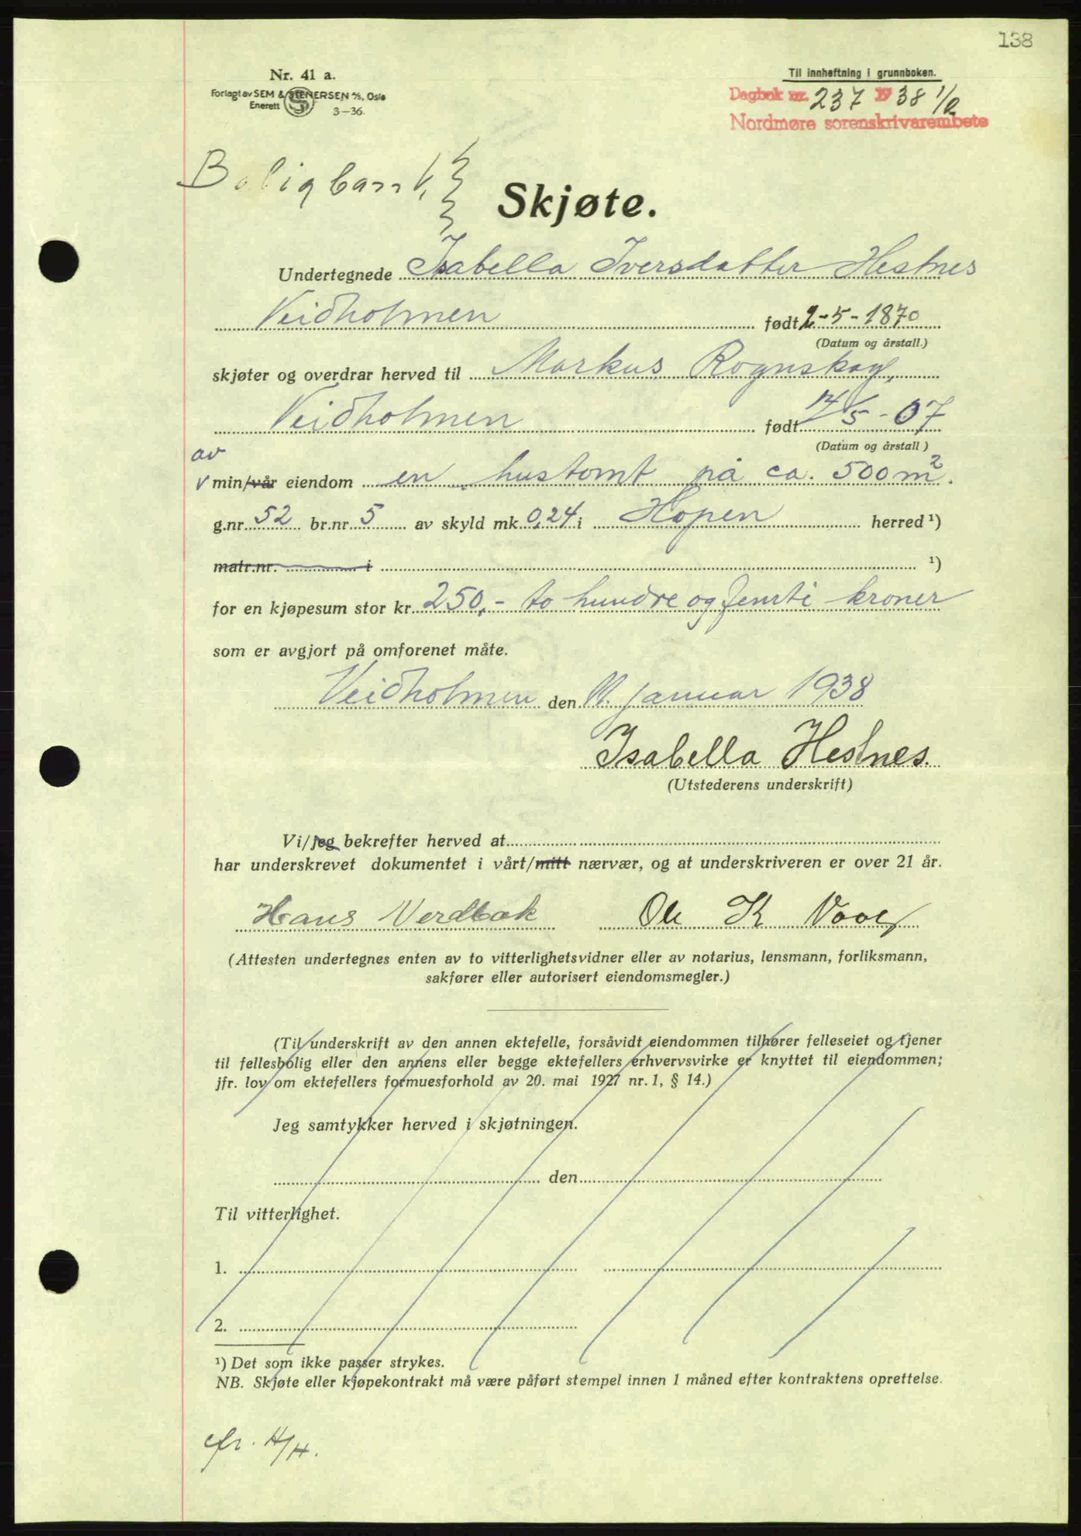 138
Nr. 41 a.
Forlagt av SEM & STENERSEN A/S, Oslo
Enerett
3-36.
Til innheftning i grunnboken.
Dagbok nr. 237 1938 1/2
Nordmøre sorenskrivarembete
Boligbank,
Skjøte.
Undertegnede Isabella Iversdatter Hestnes
Veidholmen født 2-5-1870
(Datum og årstall.)
skjøter og overdrar herved til Markus Rognskog,
Veidholmen født 14/5-07
(Datum og årstall)
av
min/vår eiendom en hustomt på ca. 500 m².
g.nr. 52 br.nr. 5 av skyld mk. 0,24 i Hopen herred ¹)
matr.nr. i ¹)
for en kjøpesum stor kr. 250,- to hundre og femti kroner
som er avgjort på omforenet måte.
Veidholmen den 11. januar 1938
Isabella Hestnes.
(Utstederens underskrift)
Vi/jeg bekrefter herved at
har underskrevet dokumentet i vårt/mitt nærvær, og at underskriveren er over 21 år.
Hans Nerdbak Ole K
(Attesten undertegnes enten av to vitterlighetsvidner eller av notarius, lensmann, forliksmann,
sakfører eller autorisert eiendomsmegler.)
(Til underskrift av den annen ektefelle, forsåvidt eiendommen tilhører felleseiet og tjener
til fellesbolig eller den annens eller begge ektefellers erhvervsvirke er knyttet til eiendommen;
jfr. lov om ektefellers formuesforhold av 20. mai 1927 nr. 1, § 14.)
Jeg samtykker herved i skjøtningen.
den
Til vitterlighet.
1.
2.
¹) Det som ikke passer strykes.
NB. Skjøte eller kjøpekontrakt må være påført stempel innen 1 måned efter kontraktens oprettelse.